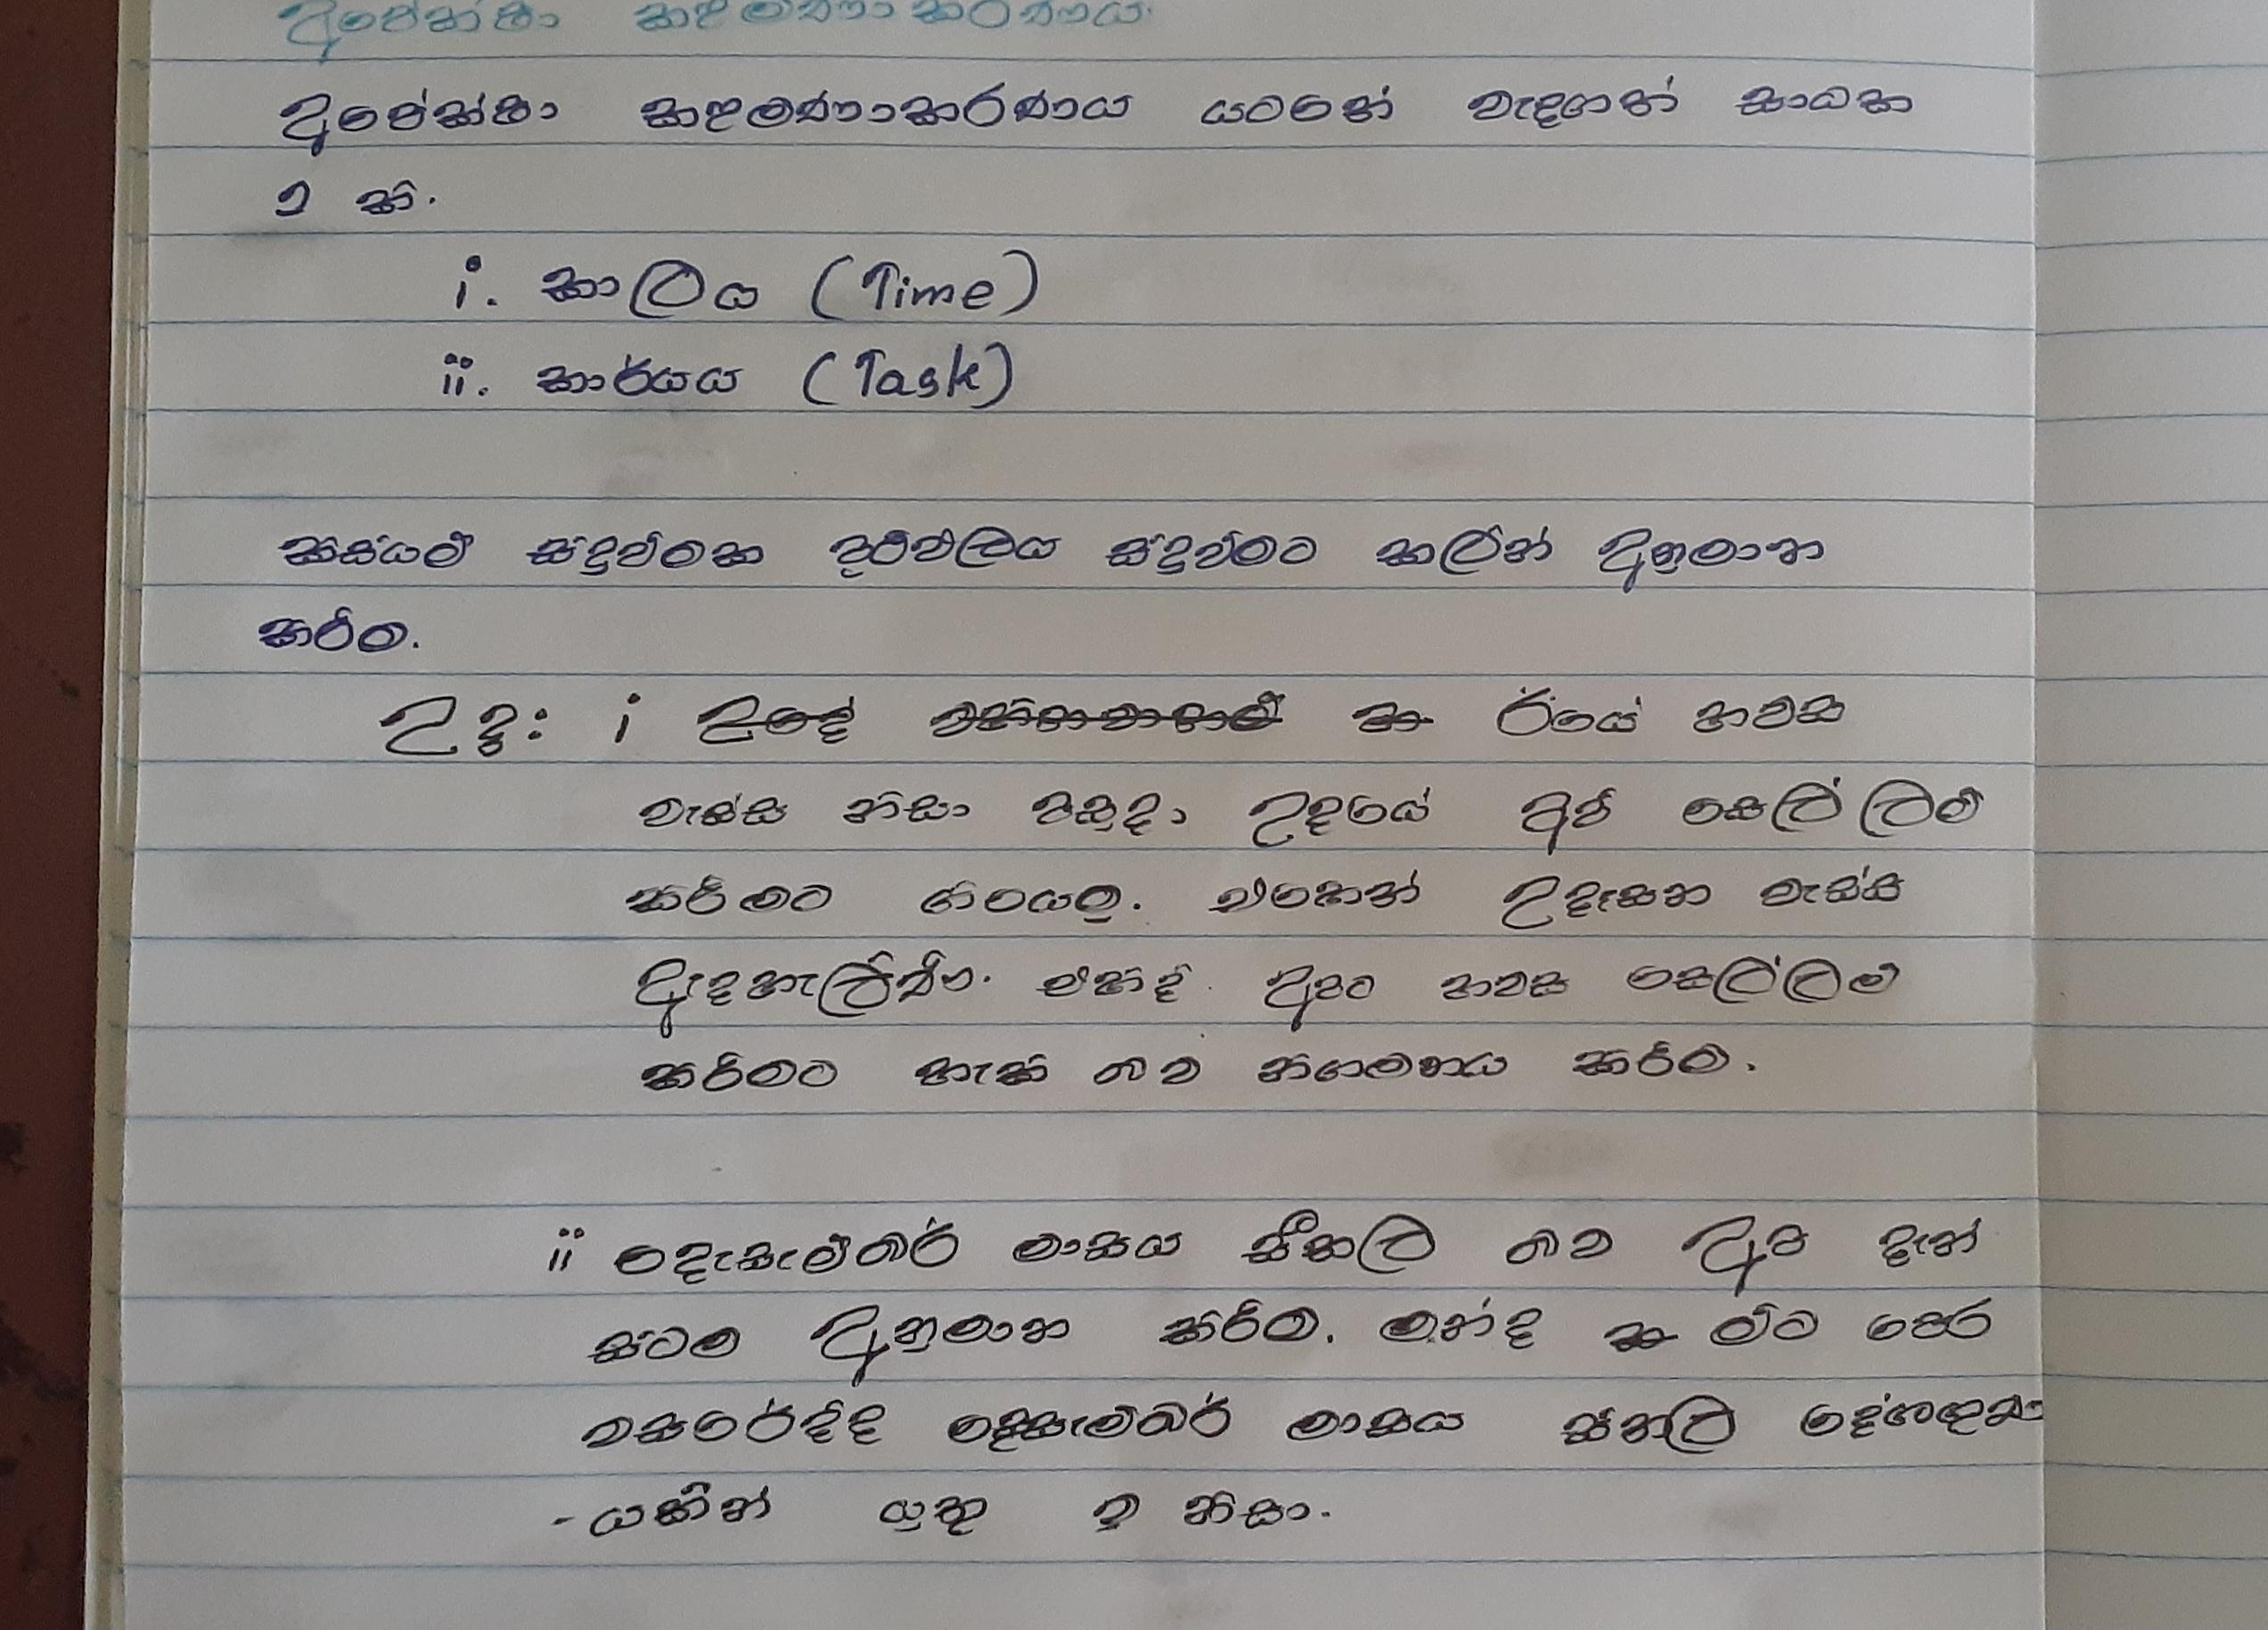 අපේක්ෂා කළමණාකරණය
අපේක්ෂා කළමණාකරණය යටතේ වැදගත් සාධක
2 කි.
i. කාලය (Time)
ii. කාර්යය (Task)
කිසියම් සිදුවීමක ප්‍රථිඵලය සිදුවීමට කලින් අනුමාන
කිරීම.
උදා: i ඊයේ හවස
වැස්ස නිසා පසුදා උදයේ අපි සෙල්ලම්
කිරීමට ගියෙමු. එහෙත් උදෑසන වැස්ස
ඇදහැලිණි. එහිදී අපට හවස සෙල්ලම්
කිරීමට හැකි බව නිගමනය කිරීම.
ii දෙසැම්බර් මාසය සීතල බව අප දැන්
සිටම අනුමාන කිරීම. මන්ද මීට පෙර
වසරේදීද දෙසැම්බර් මාසය සීතල දේශගුණ
-යකින් යුතු වූ නිසා.